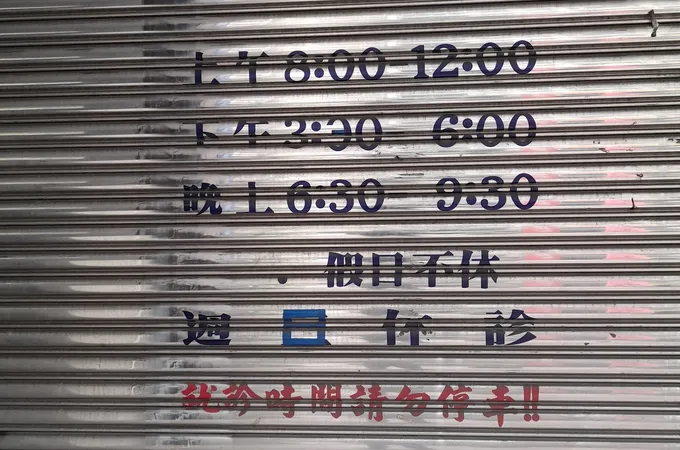 上午8:00-12:00
下午3:30 6:00
晚上6:30 9:30
假日不休
週日休診
就診時間請勿停車!!